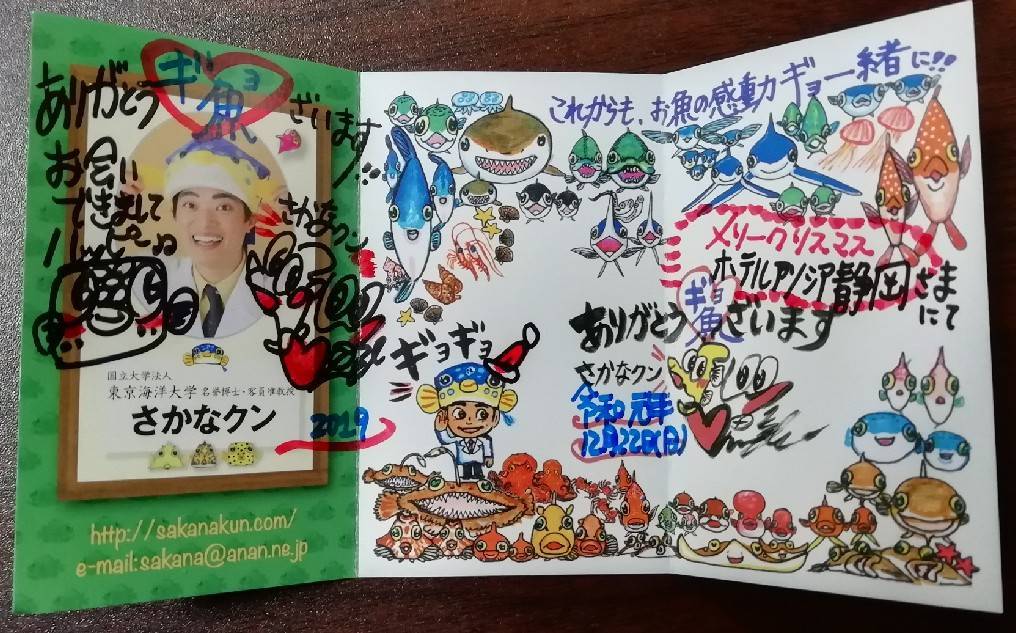 ありがとう
ギョ
魚
ざいます!!!
お会い
できまして
ハッピー
さかなクン
国立大学法人
東京海洋大学 名誉博士・客員准教授
さかなクン
2019
http://sakanakun.com/
e-mail:sakana@anan.ne.jp
これからも、お魚の感動ギョ一緒に!!
メリークリスマス
ホテルアソシア静岡さま
にて
ありがとう
ギョ
魚
ざいます
ギョギョ
さかなクン
令和元年
12月22日(日)